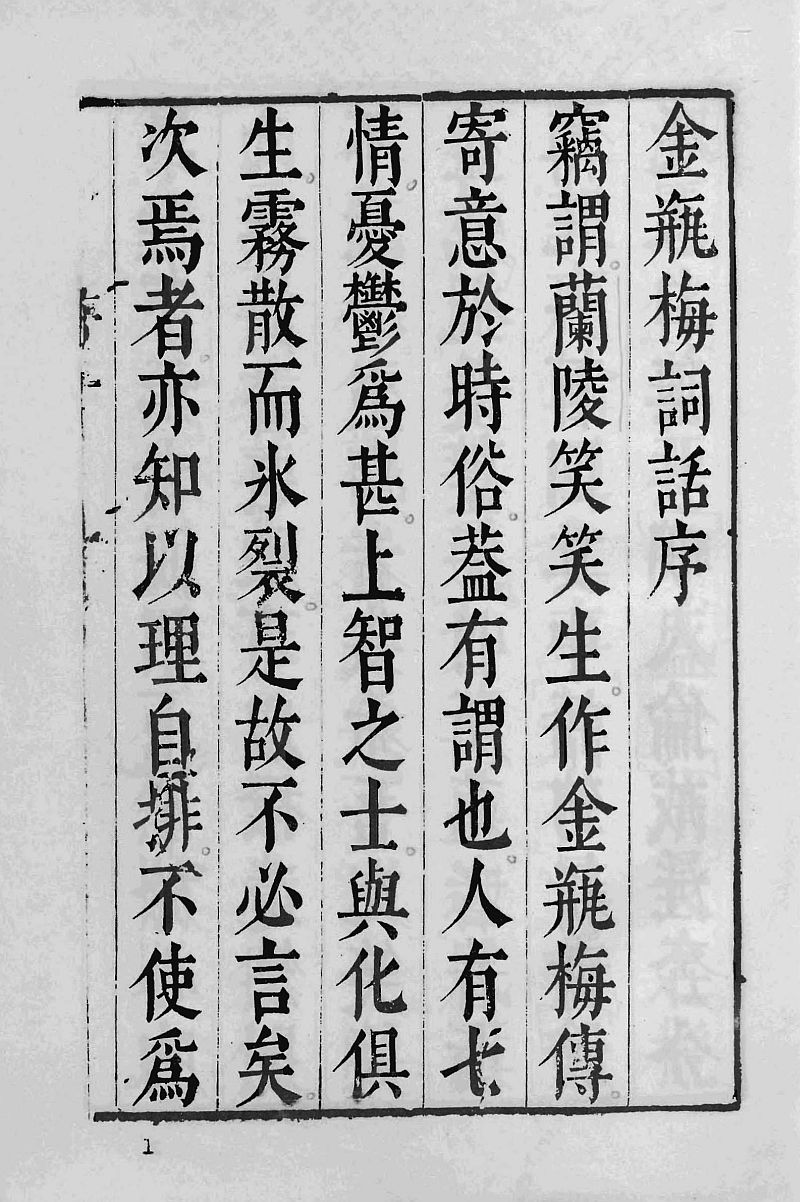 金瓶梅詞話序
竊謂蘭陵笑笑生作金瓶梅傳
寄意於時俗葢有謂也人有七
情憂鬱爲甚上智之士與化俱
生霧散而氷裂是故不必言矣
次焉者亦知以理自排不使爲
1